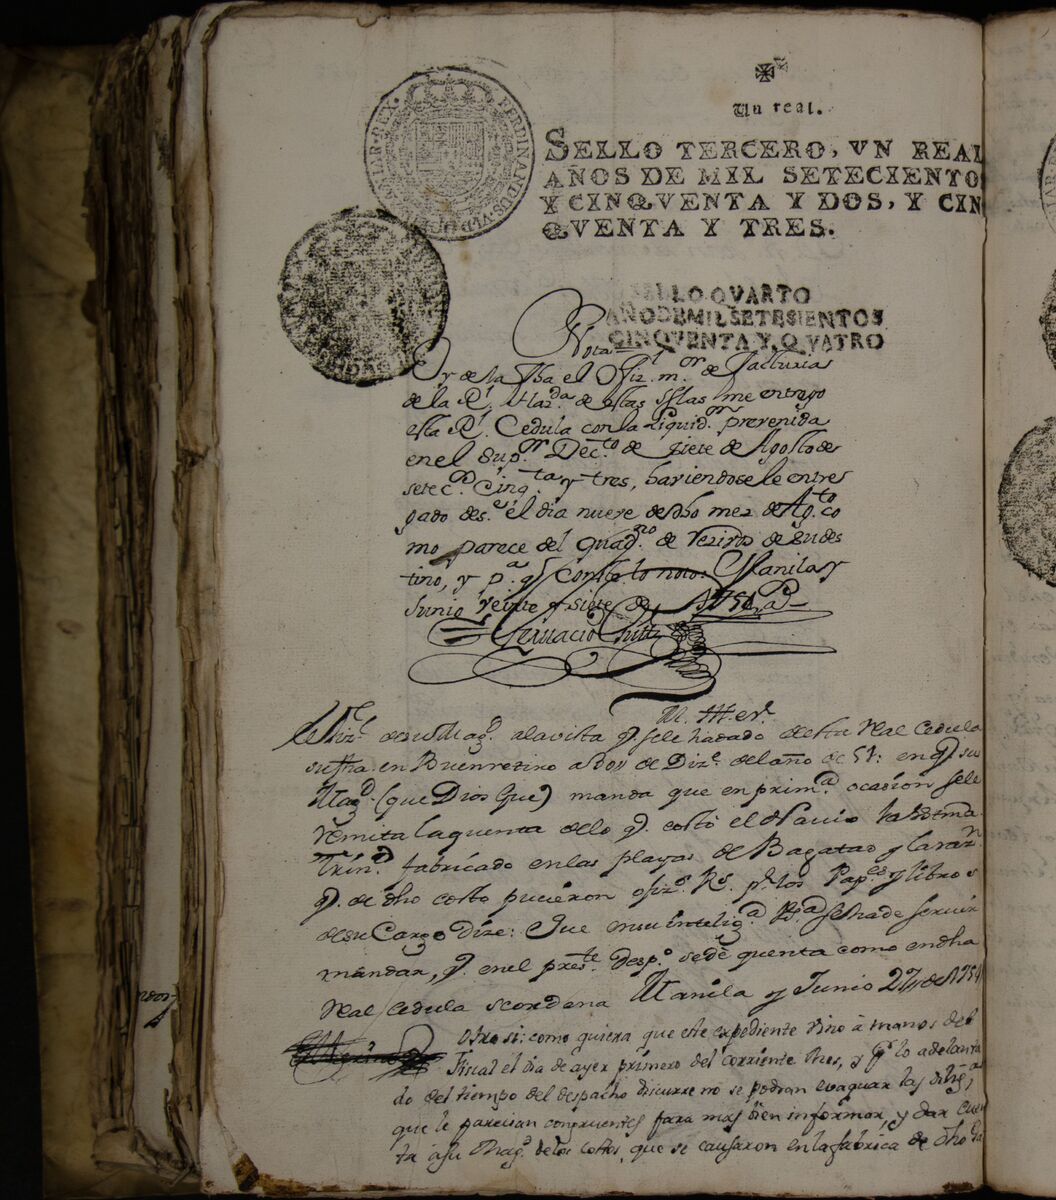 Un real.
SELLO TERCERO, VN REAL
AÑOS DE MIL SETECIENTO
Y CINQVENTA Y DOS, Y CIN
QVENTA Y TRES.
FERDINANDUS.VI.D.G.
REX.
SELLO QVARTO
AÑO DE MIL SETESIENTOS
CINQVENTA Y QVATRO
Nota
Oy de la fha el Ofiz.l m.or de facturia
de la Rl. Haz.da de estas Yslas me entrego
esta Rl. Cedula con la Liquid.on prevenida
en el Sup.or Dec.to de siete de Agosto de
setec.s cinq.ta y tres, haviendosele entre
gado des.e el dia nueve de dho mez de Ag.to co
mo parece del quad.no de rezivos de su des
tino, y p.a q.e conste lo noto: Manila y
Junio veinte y siete de 1754 a.s
Ignacio
M. Yll. er.
El Fiz.l de su Mag.d a la vista q.e se le ha dado de esta Real Cedula
su fha en Buenretiro a dos de Diz.e del año de 51: en q.e su
Mag.d (que Dios Gue) manda que en prim.a ocasion se le
remita la quenta de lo q.e costò el Navio la Sstma.
Trin.d fabricado en las playas de Bagatao y la raz.n
q.e de dho costo pucieron ofiz.s R.s p.r los Pap.es y libros
de su Cargo Dize: Que en su intelig.a V.S.a se ha de servir
mandar, q.e en el pres.te desp.o se dè quenta como en dha
Real cedula se ordena Manila y Junio 27, de 1754
otro si: como quiera que este expediente vino à manos del
Fiscal el dia de ayer primero del corriente Mes, y q.e lo adelanta
do del tiempo del despacho discurre no se podran evaquar las dilig.as
que le parecian congruentes para mas bien informar, y dar cuen
ta à su Mag.d de los costos, que se causaron en la fabrica de dho